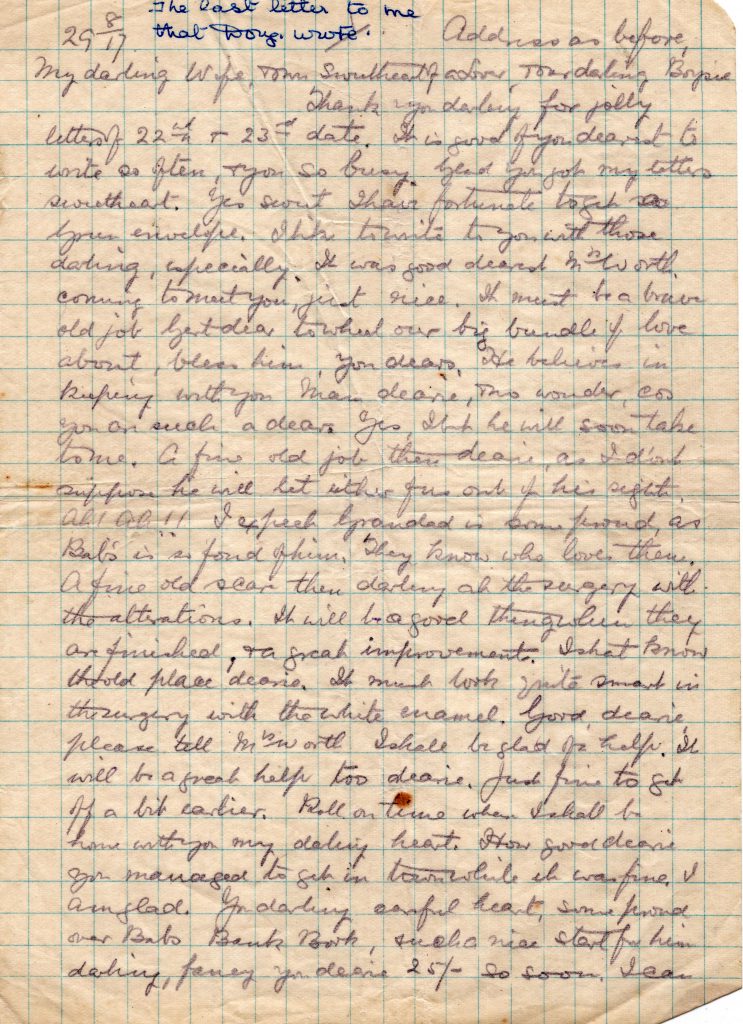 The last letter to me
that Doug. wrote.
29 8/17 Address as before,
My darling Wife, own Sweetheart & adover, & our darling Boysie
Thank you darling for jolly
letters of 22nd & 23rd date. It is good of you dearest to
write so often, & you so busy. Glad you got my letters
sweetheart. Yes sweet I have fortunate to get
Green envelope. I like to write to you with those
darling, especially. It was good dearest Mrs Worth
coming to meet you, just nice. It must be a brave
old job Gert dear to wheel our big bundle of love
about, bless him, you dears. He believes in
keeping with you Mam dearie, & no wonder, cos
you are such a dear. Yes, I bet he will soon take
to me. A fine old job then dearie, as I d'ont
suppose he will let either of us out of his sight.
Ah! Ah!! I expect Grandad is some proud, as
Bab's is so fond of him. They know who loves them.
A fine old scare then darling at the surgery with
the alterations. It will be a good thing when they
are finished, & a great improvement. I shat know
the old place dearie. It must look quite smart in
the surgery with the white enamel. Good, dearie,
please tell Mrs Worth I shall be glad of help. It
will be a great help too dearie. Just fine to get
off a bit earlier. Roll on time when I shall be
home with you my darling heart. How good dearie
you managed to get in town while it was fine. I
am glad. You darling careful heart, some proud
over Babs Bank Book, such a nice start for him
darling, fancy you dearie 25/- so soon. I can